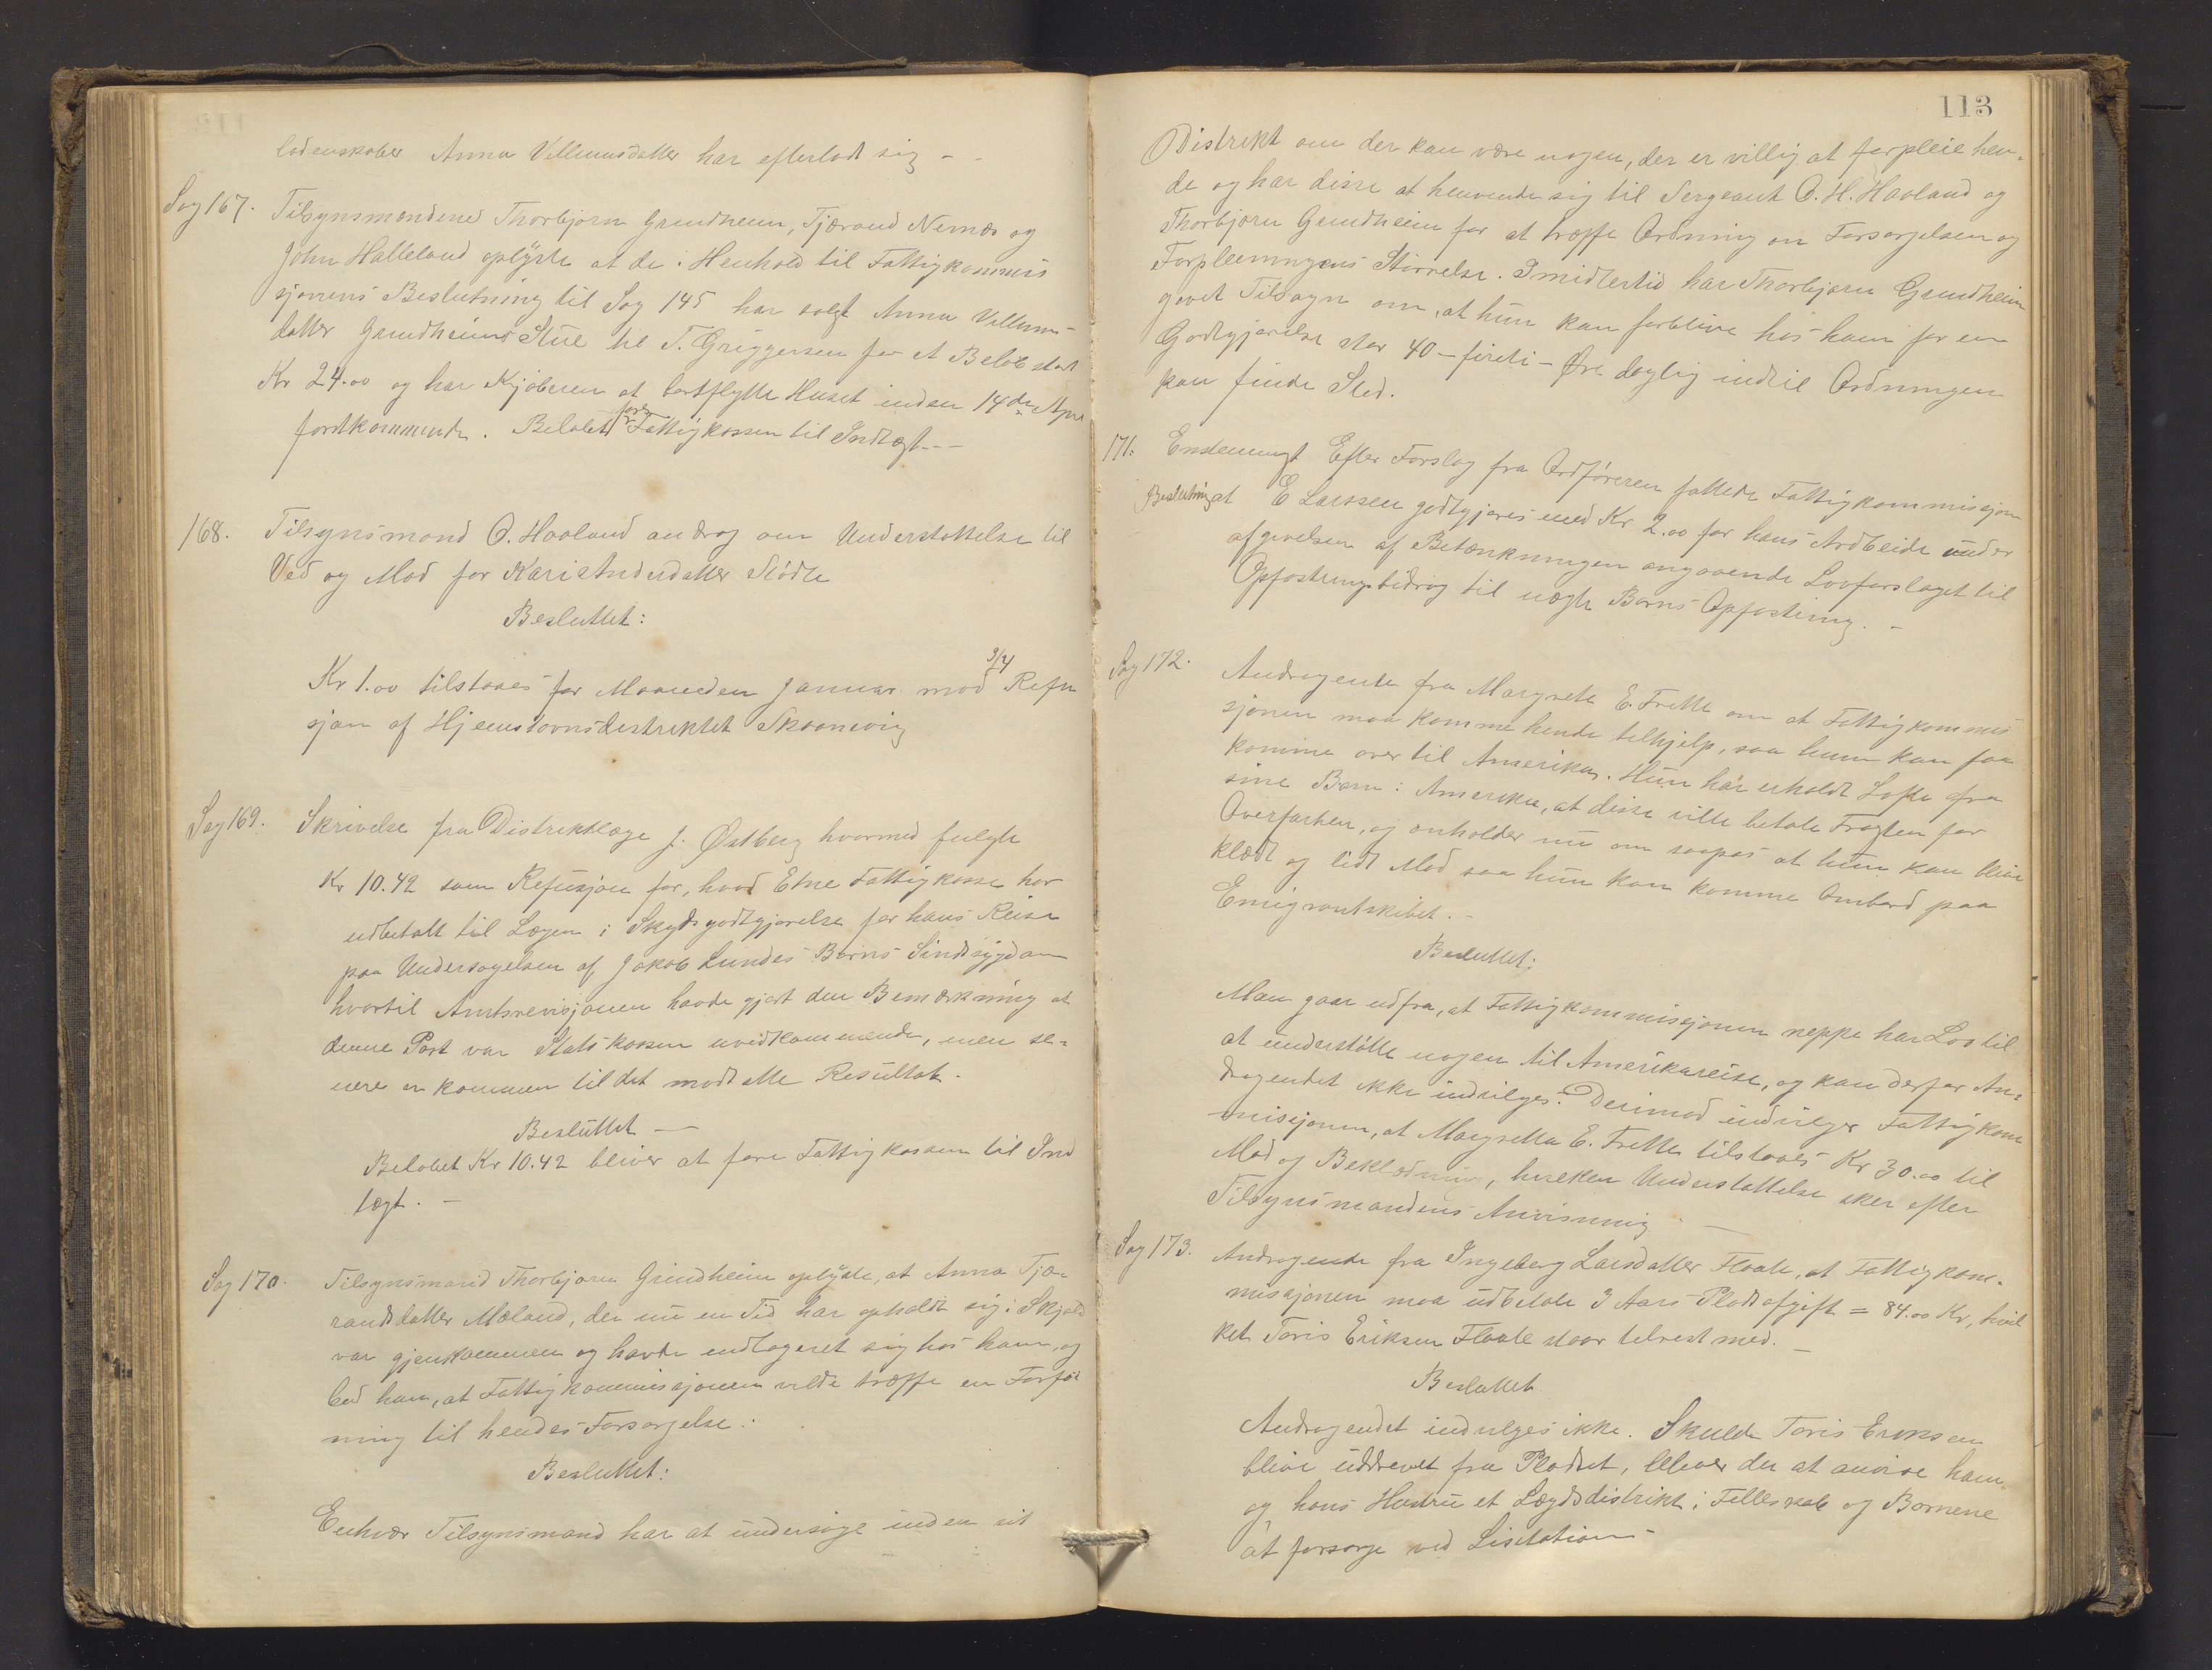 ladenskaber Anna Villumsdatter har efterladt sig –
Sag 167. Tilsynsmændene Thorbjørn Grindheim, Tjærand Nernæs og
John Halleland oplyste at de i Henhold til Fattigkommis
sjonens Beslutning til Sag 145 har solgt Anna Villums-
datter Grindheims Stue til T. Griggersen for et Beløb stort
Kr 24.00 og har Kjøberen at bortflytte Huset inden 14de Apri
førstkommende. Beløbet føres Fattigkassen til Indtægt. –
168. Tilsynsmand O. Haaland androg om Understøttelse til
Ved og Mad for Kari Andersdatter Stødle
Besluttet:
Kr 1.00 tilstaaes for Maaneden Januar mod 3/4 Refu
sjon af Hjemstavnsdistriktet Skaanevig
Sag 169. Skrivelse fra Distriktslæge J. Østberg hvormed fulgte
Kr 10.42 som Refusjon for, hvad Etne Fattigkasse har
udbetalt til Lægen i Skydsgodtgjørelse for hans Reise
paa Undersøgelsen af Jakob Lundes Børns Sindssygdom
hvortil Amtsrevisjonen havde gjort den Bemærkning at
denne Post var Statskassen uvedkommende, men se-
nere er kommen til det modsatte Resultat.
Besluttet –
Beløbet Kr 10.42 bliver at føre Fattigkassen til Ind
tægt. –
Sag 170. Tilsynsmand Thorbjørn Grindheim oplyste, at Anna Tjæ-
randsdatter Mæland, der nu en Tid har opholdt sig i Skjold
var gjenkommen og havde indlogeret sig hos ham, og
bad han, at Fattigkommissjonen vilde træffe en Forføi
ning til hendes Forsørgelse.
Besluttet:
Enhver Tilsynsmand har at undersøge inden sit
113
Distrikt om der kan være nogen, der er villig at forpleie hen-
de og har disse at henvende sig til Sergeant O. H. Haaland og
Thorbjørn Grindheim for at træffe Ordning om Forsørgelsen og
Forpleiningens Størrelse. Imidlertid har Thorbjørn Grindheim
givet Tilsagn om, at hun kan forblive hos ham for en
Godtgjørelse stor 40 – firti – Øre daglig indtil Ordningen
kan finde Sted.
171. Enstemmigt Efter Forslag fra Ordføreren fattede Fattigkommisjon
Beslutning at E Larssen godtgjøres med Kr. 2.00 for hans Arbeide under
afgivelsen af Betænkningen angaaende Lovforslaget til
Opfostringsbidrag til uægte Børns Opfostring. –
Sag 172. Andragende fra Margrete E. Frette om at Fattigkommis
sjonen maa komme hende tilhjelp, saa hun kan faa
komme over til Amerika. Hun har erholdt Løfte fra
sine Børn i Amerika, at disse ville betale Fragten for
Overfarten, og anholder nu om saapas at hun kan blive
klædt og lidt Mad saa hun kan komme Ombord paa
Emigrantskibet. –
Besluttet:
Man gaar udfra, at Fattigkommissjonen neppe har Lov til
at understøtte nogen til Amerikareise, og kan derfor An-
dragendet ikke indvilges. Derimod indvilger Fattigkom
misjonen, at Margretha E. Frette tilstaaes Kr 30.00 til
Mad og Beklædning, hvilken Understøttelse sker efter
Tilsynsmandens Anvisning –
Sag 173. Andragende fra Ingeborg Larsdatter Flaate, at Fattigkom-
missjonen maa udbetale 3 Aars Pladsafgift = 84.00 Kr, hvil
ket Toris Eriksen Flaate staar tilrest med. –
Besluttet
Andragendet indvilges ikke. Skulde Toris Eriksen
blive uddrevet fra Pladset, bliver der at anvise ham
og hans Hustru et Lægdsdistrikt i Fælleskab og Børnene
at forsørge ved Lisitation –